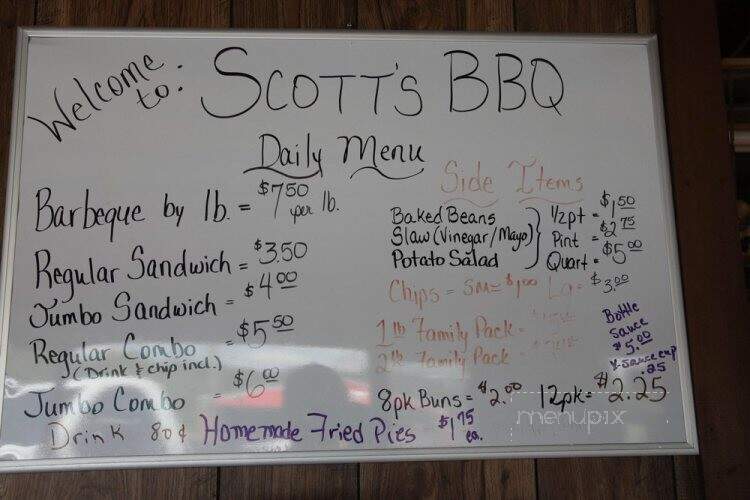 Welcome to: SCOTT'S BBQ
Daily Menu
Barbeque by lb. = $7.50 per lb.
Regular Sandwich = $3.50
Jumbo Sandwich = $4.00
Regular Combo = $5.50
(Drink & chip incl.)
Jumbo Combo = $6.00
Drink 80¢
Homemade Fried Pies $1.75 ea.
Side Items
Baked Beans
Slaw (Vinegar/Mayo)
Potato Salad
1/2pt = $1.50
Pint = $2.75
Quart = $5.00
Chips = Sm = $1.00 Lg = $3.00
1 lb Family Pack =
2 lb Family Pack =
Bottle
Sauce
$5.00
.25
8pk Buns = $2.00 12pk = $2.25
menupix